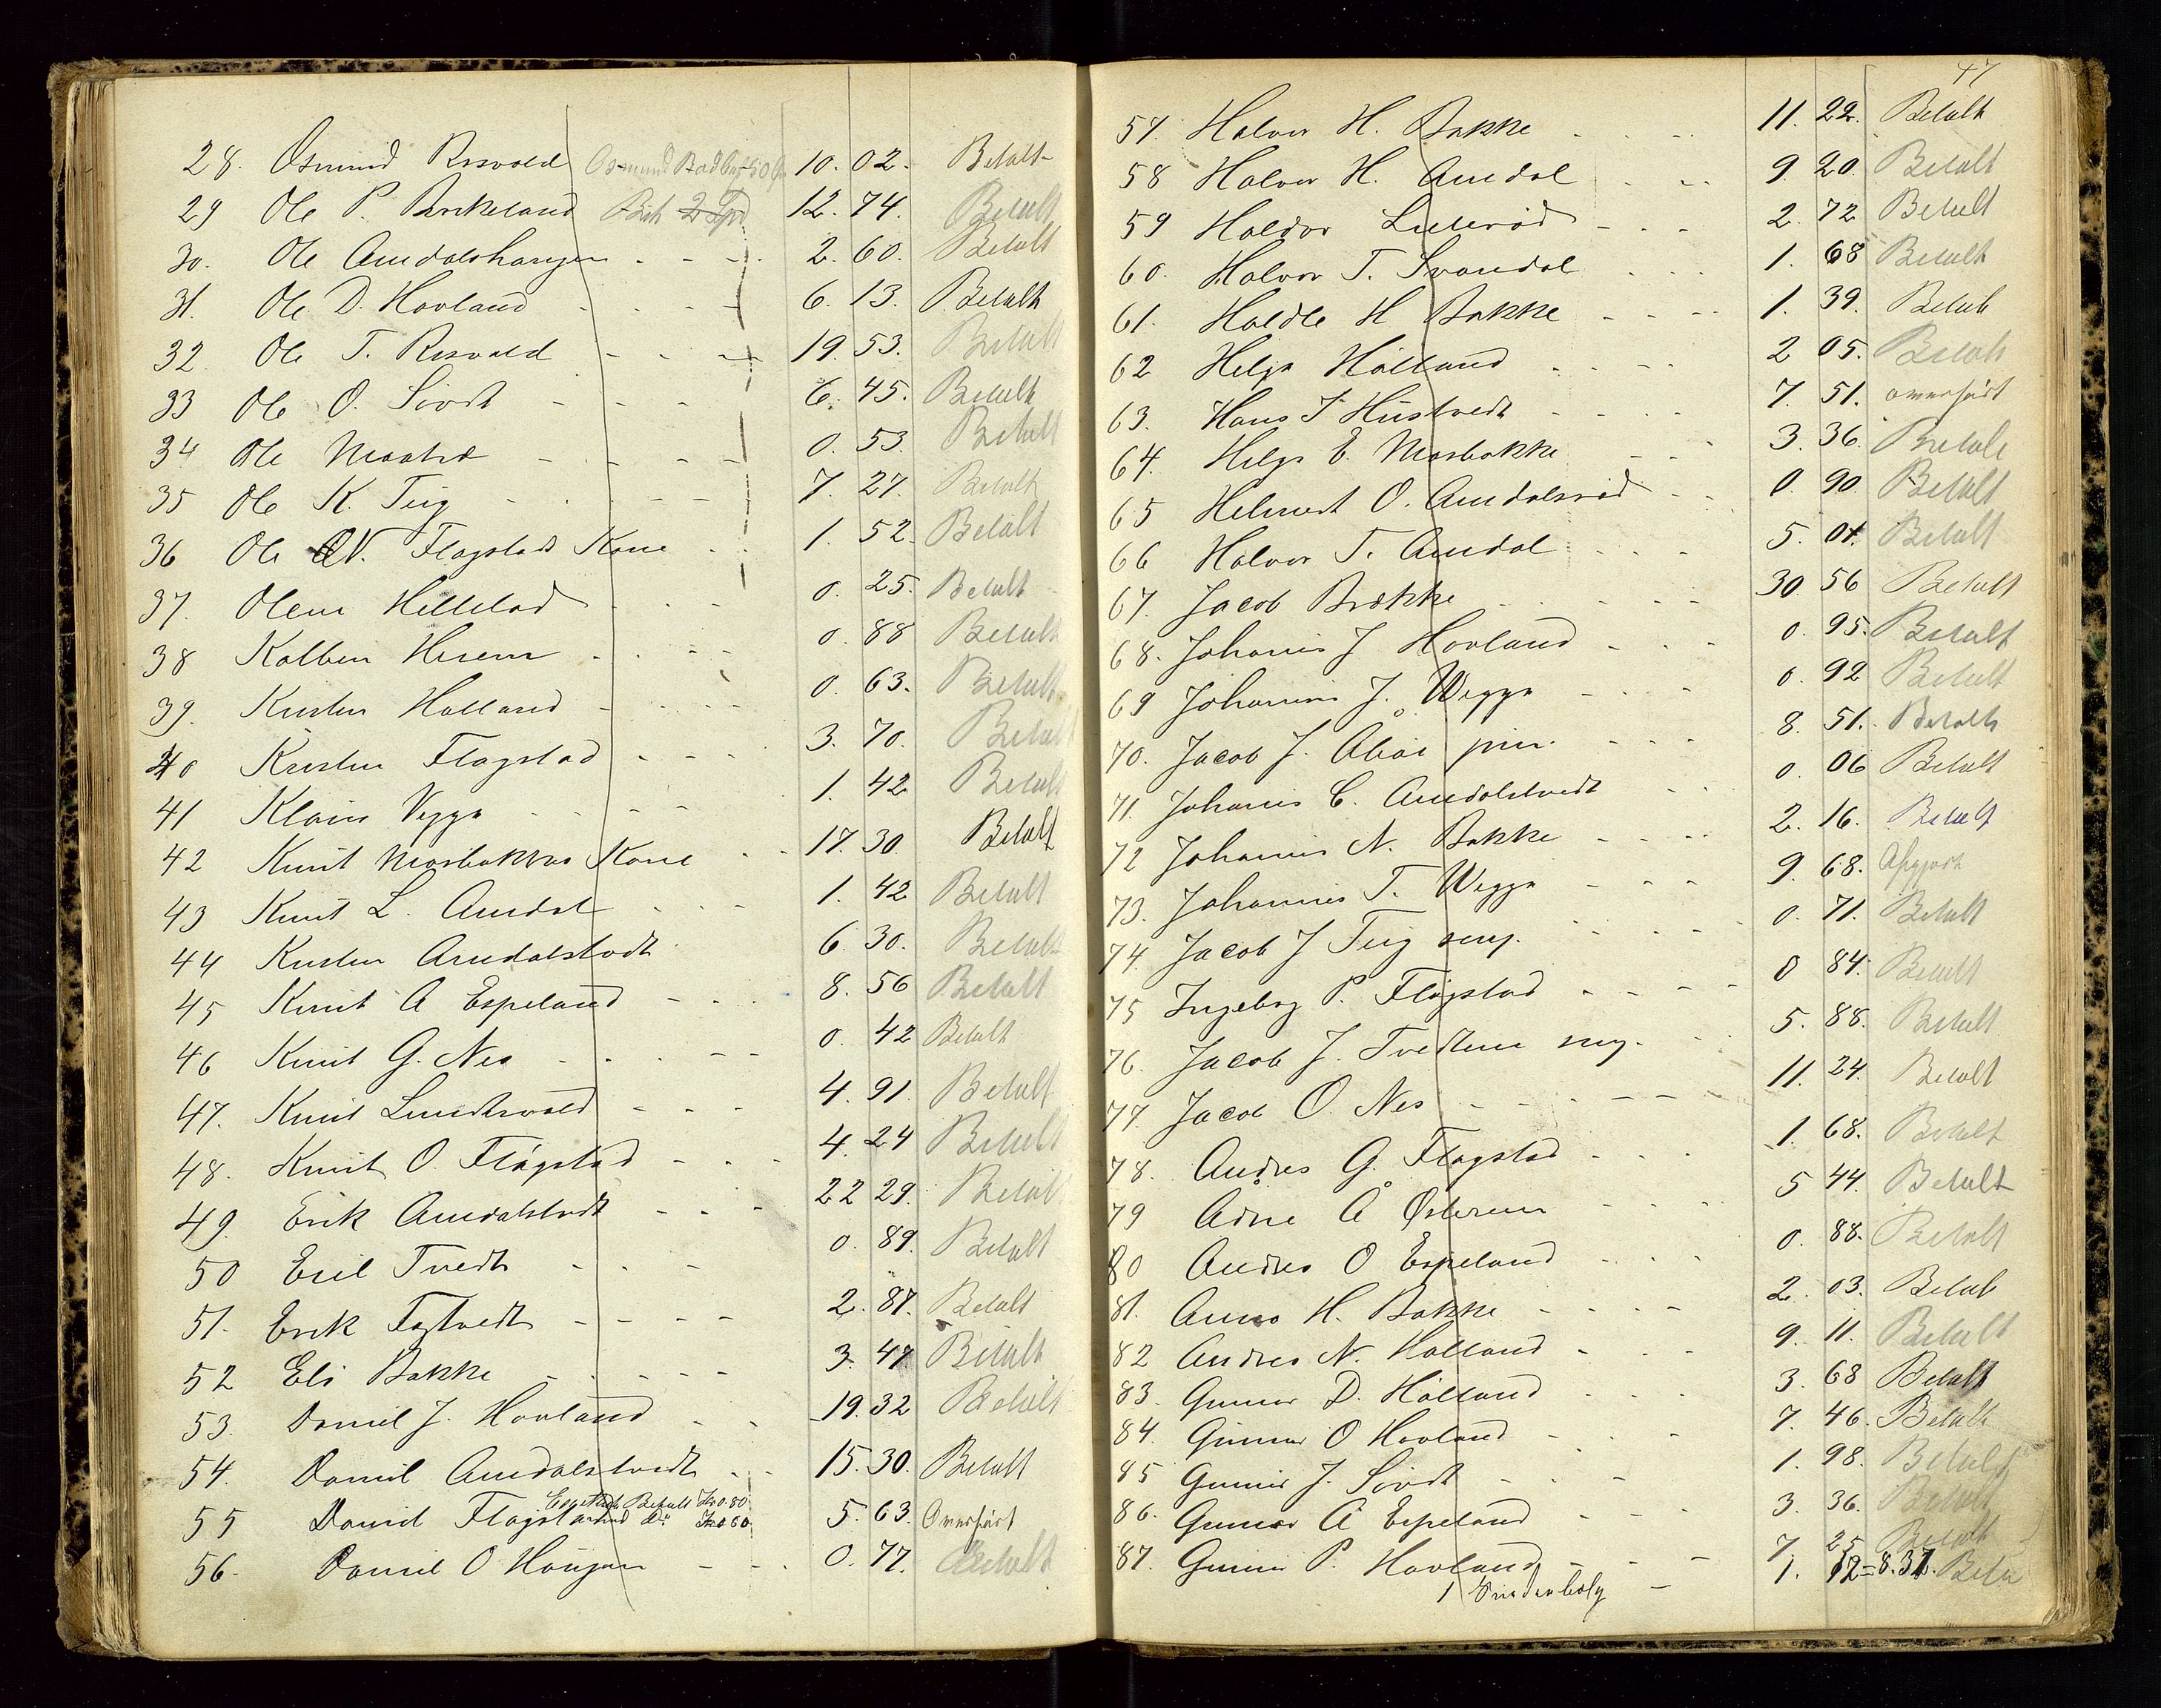 28. Osmund Risvold 10. 02. Betalt
29 Ole P. Birkeland 12. 74. Betalt
30. Ole Amdalshaugen 2. 60. Betalt
31. Ole D. Hovland 6. 13. Betalt
32 Ole T. Risvold 19. 53. Betalt
33 Ole O. Sørdt 6. 45. Betalt
34 Ole 0. 53 Betalt
35 Ole K. Teig 7. 27. Betalt
36 Ole N. Flogstads Kone 1. 52 Betalt
37. Olene Hellelad 0. 25. Betalt
38 Kolben Heren 0. 88 Betalt
39. Kirsten Holland 0. 63. Betalt
40 Kirsten Flogstad 3. 70. Betalt
41 Klaus Vegge 1. 42 Betalt
42 Knut Mosbakkes Kone 17. 30 Betalt
43 Knut L. Amdal 1. 42 Betalt
44 Kirsten Amdalstvedt 6. 30. Betalt
45 Knut A Espeland 8. 56 Betalt
46 Knut G. Nes 0. 42 Betalt
47. Knut 4. 91 Betalt
48. Knut O. Flogstad 4. 24 Betalt
49. Erik Amdalstvedt 22 29. Betalt
50 Eril Tvedt 0. 89. Betalt
51. Erik Fostvedt 2. 87. Betalt
52 Eli Bakke 3. 47 Betalt
53. Daniel J. Hovland 19. 32 Betalt
54. Daniel Amdalstvedt 15. 30. Betalt
Betalt Kr 0.80
55 Daniel Flogstad 5. 63. Overført
56. Daniel O Haugen 0. 77. Betalt
47
57. Halvor H. Bakke 11. 22. Betalt
58 Halvor H. Amdal 9. 20 Betalt
59 Haldor Lillerød 2. 72 Betalt
60. Halvor T. Svandal 1. 68 Betalt
61. Holdle H Bakke 1. 39. Betalt
62 Helge Holland 2 05. Betalt
63. Hans J Hustvedt 7. 51. overført
64. Helge E. Mosbakke 3. 36. Betalt
65 Helmert O. Amdalsrød 0. 90. Betalt
66 Halvor T. Amdal 5. 01. Betalt
67. Jacob Brekke 30. 56 Betalt
68. Johannes J Hovland 0. 95. Betalt
69 Johannes J. Wegge 0. 92 Betalt
70. Jacob J. Åbøe jun. 8. 51. Betalt
71. Johannes C. Amdalstvedt 0. 06 Betalt
72 Johannes N. Bakke 2. 16. Betalt
73. Johannes T. Wegge 9. 68. Afgjort
74. Jacob J Teig 0. 71. Betalt
75 Ingeborg P. Flogstad 0 84. Betalt
76. Jacob J. Tvedten 5. 88. Betalt
77. Jacob O. Nes 11. 24. Betalt
78. Andres G. Flogstad 1. 68. Betalt
79 Adne Å Østerem 5 44. Betalt
80 Andres O Espeland 0. 88. Betalt
81. Anna H. Bakke 2. 03. Betalt
82 Andres N. Holland 9. 11. Betalt
83. Gunnar D. Holland 3. 68 Betalt
84. Gunnar O Hovland 7. 46. Betalt
85 Gunnar J. Sørdt 1. 98. Betalt
86. Gunnar A Espeland 3. 36. Betalt
87. Gunnar P. Hovland 7 25 Betalt
1 1. 12=8.37. Beta